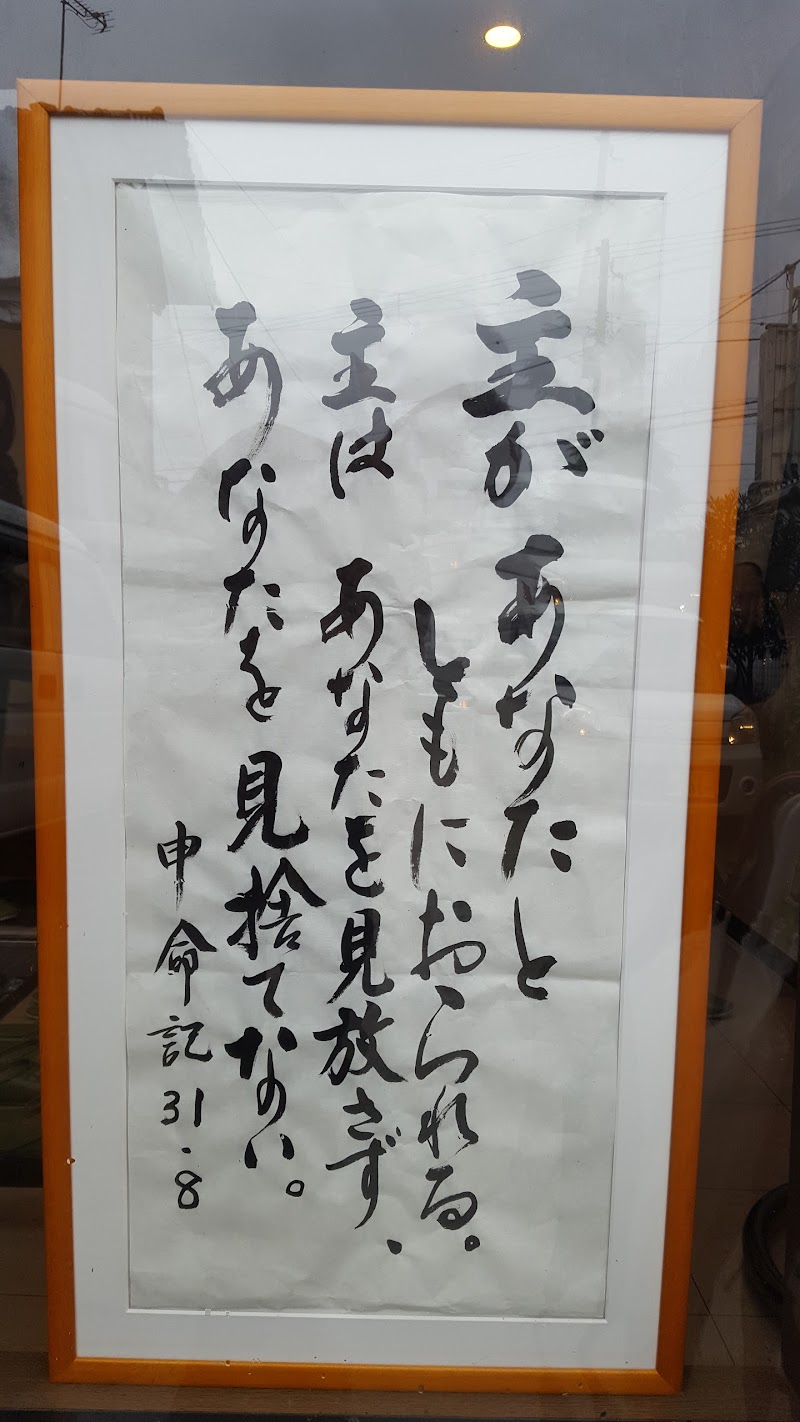 主があなたと
ともにおられる。
主は あなたを見放さず、
あなたを見捨てない。
申命記31.8